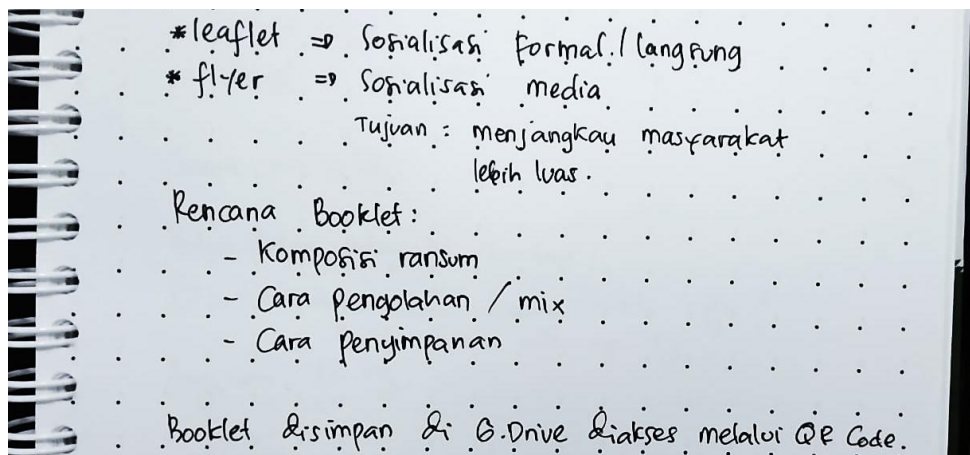 *leaflet => Sosialisasi Formal / langsung
* flyer => Sosialisasi media
Tujuan : menjangkau masyarakat
lebih luas.
Rencana Booklet:
- Komposisi ransum
- Cara pengolahan / mix
- Cara Penyimpanan
Booklet disimpan di G.Drive diakses melalui QR Code.